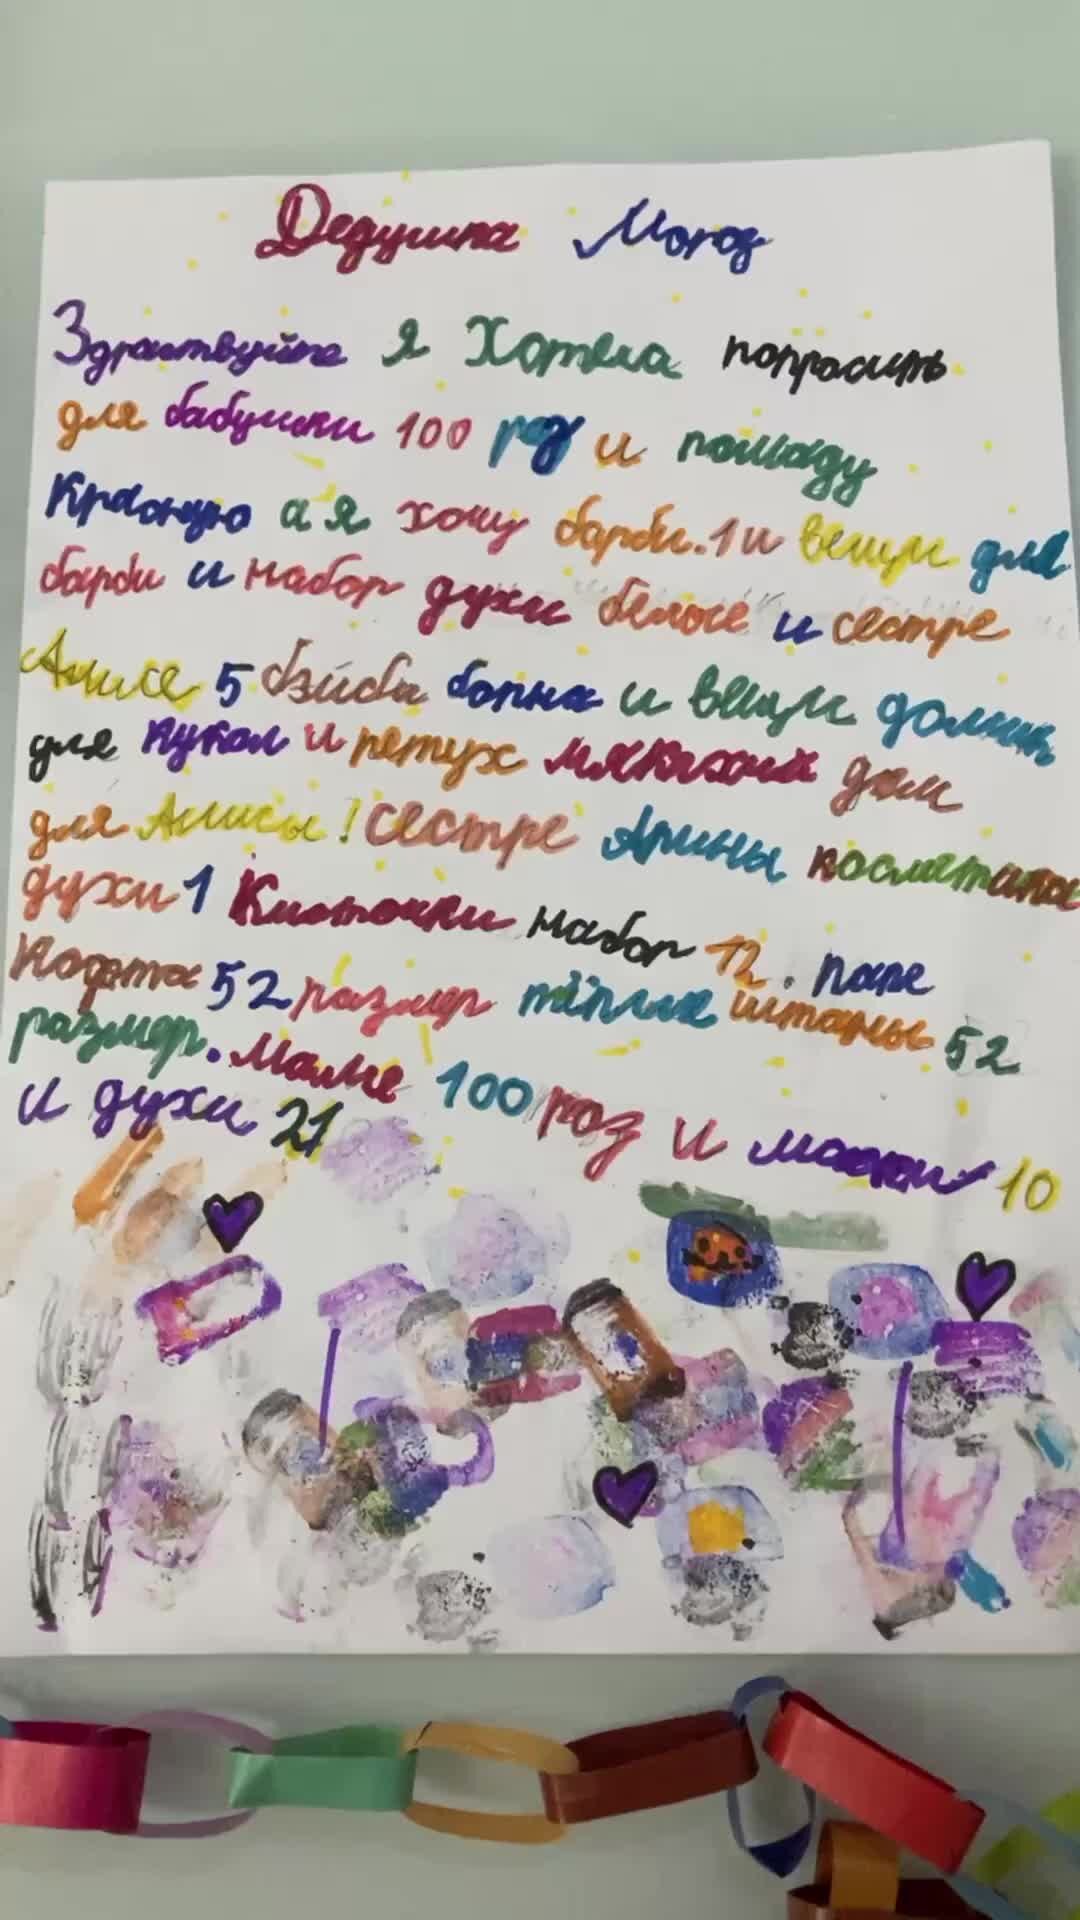 Дедушка Мороз
Здраствуйте я Хотела поprасить
для бабушки 100 роз и помаду
Красную а я хочу барби.1 и вещи для
барби и набор духи белые и сестре
Алисе 5 бэйби борна и вещи домик
для кукол и петух мякгкий дом
для Алисы! сестре Арины косметика
духи 1 Кисточки набор 12. папе
Кофта 52 размер тёплые штаны 52
размер. маме 100 роз и маски 10
и духи 21